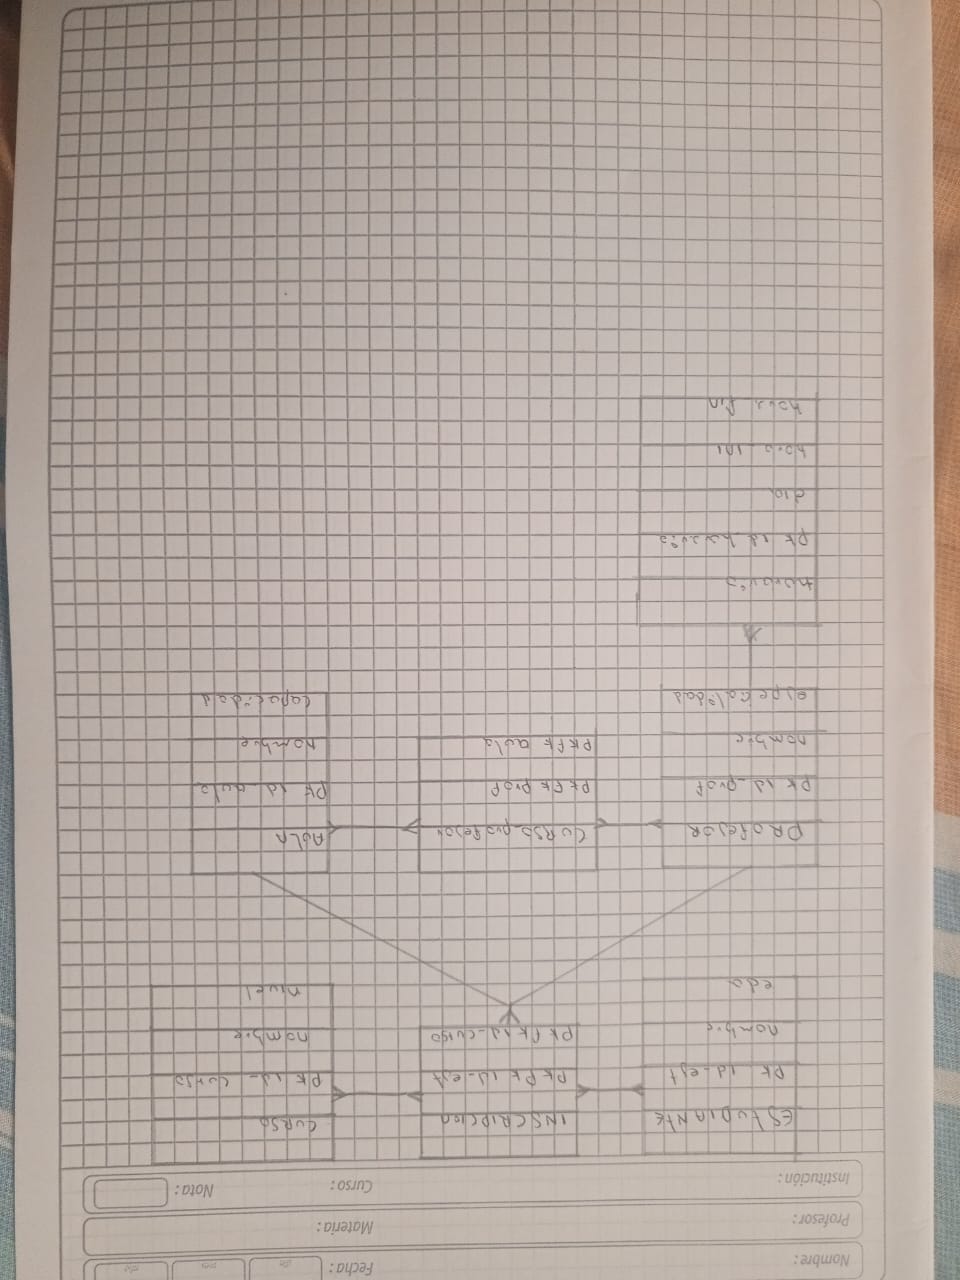 Nombre:
Fecha:
Profesor:
Materia:
Institución:
Curso:
Nota:
ESTUDIANTE
PK id_est
nombre
eda
INSCRIPCION
PK FK id_est
PK FK id_curso
CURSO
PK id_curso
nombre
nivel
PROFESOR
PK id_prof
nombre
especialidad
CURSO_profesor
PK FK prof
PK FK aula
AULA
PK id aula
nombre
capacidad
horario
PK id horario
dia
hora ini
hora fin